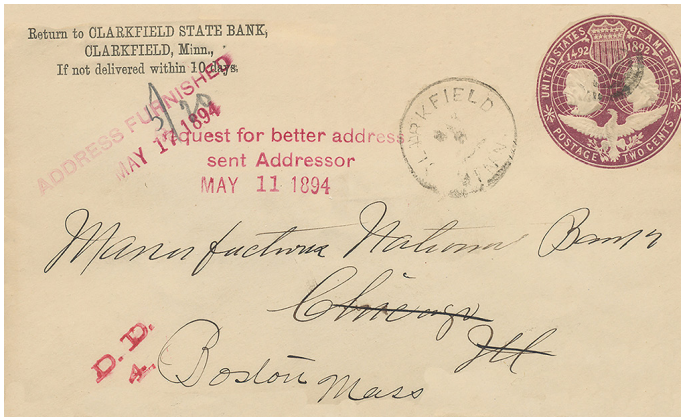 Return to CLARKFIELD STATE BANK,
CLARKFIELD, Minn.,
If not delivered within 10 days.
UNITED STATES OF AMERICA
1492 1892
POSTAGE TWO CENTS
ADDRESS FURNISHED
MAY 17 1894
5/20
Request for better address
sent Addressor
MAY 11 1894
CLARKFIELD
MINN
Manufacturers National Bank
Chicago
Ill
Boston Mass
D. D.
4.